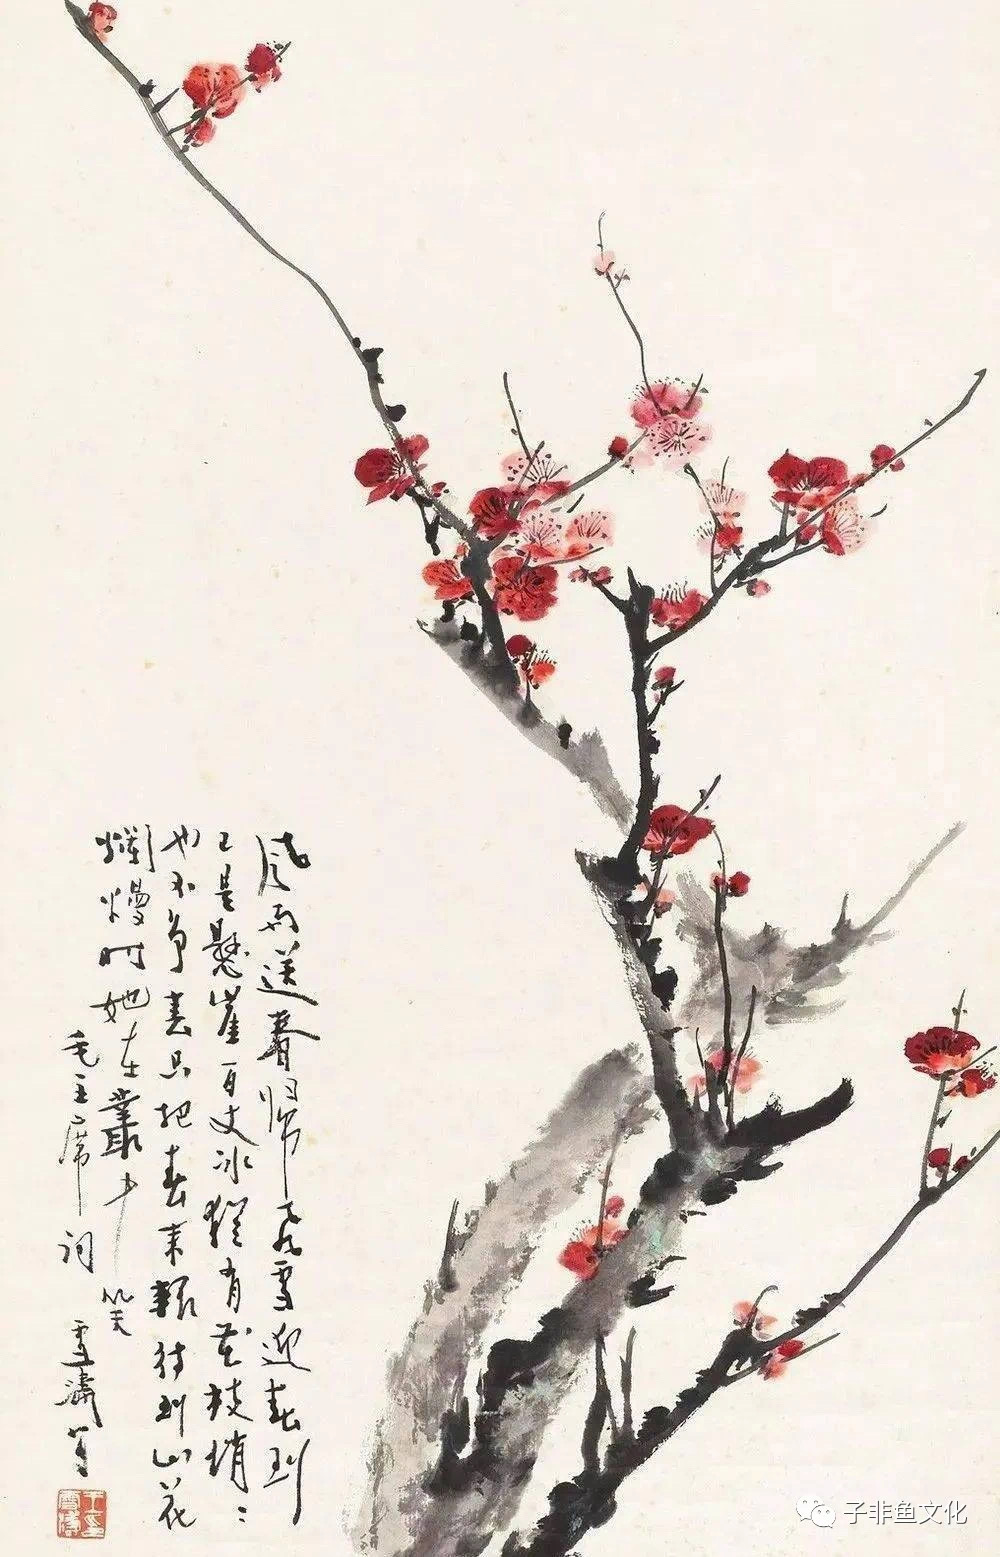 风雨送春归飞雪迎春到
已是懸崖百丈冰猶有花枝俏〻
也不争春只把春来報待到山花
爛熳时她在叢中笑
毛主席词 雪濤写
王雪濤印
子非鱼文化